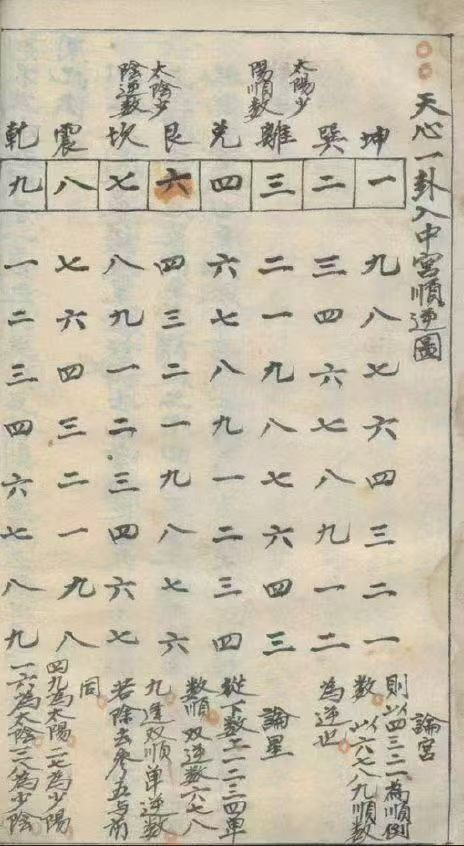 天心一卦入中宮順逆圖
太陽少
陽順数
太陰少
陰逆数
坤一九八七六四三二一
巽二三四六七八九一二
離三二一九八七六四三
兌四六七八九一二三四
艮六四三二一九八七六
坎七八九一二三四六七
震八七六四三二一九八
乾九一二三四六七八九
論宮
則以四三二一為順倒
数以六七八九順数
為逆也
論星
從下数一一二三四单
数順双逆数六七八
九逆双順单逆数
若除去参五与前
同
四九為太陽二七為少陽
一六為太陰三八為少陰